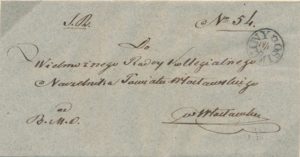 S. R. No 54.
Do
Wielmożnego Radcy Kollegialnego
Naczelnika Powiatu Włocławskiego
od
B. M. O. w Włocławku